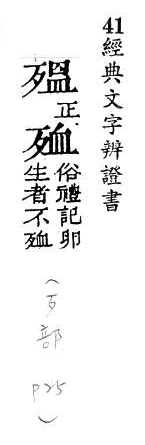 41經典文字辨證書
殟正.殈俗禮記卵
生者不殈
(歹部 P25)